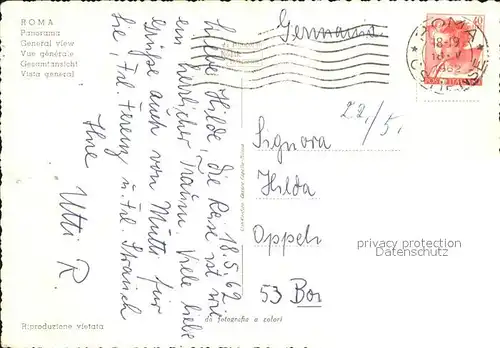 ROMA
Panorama
General view
Vue générale
Gesamtansicht
Vista general
18.5.62
Liebe Hilde, die Reise ist wie
ein herrlicher Traum. Viele liebe
Grüße auch von Mutti für
Sie, Frl. Ferenz u. Frl.
Ihre
Utti R.
Riproduzione vietata
da fotografia a colori
Germania
ROMA
18-19
1962
22./5.
Signora
Hilda
Oppeln
53 Bon
privacy protection
Datenschutz